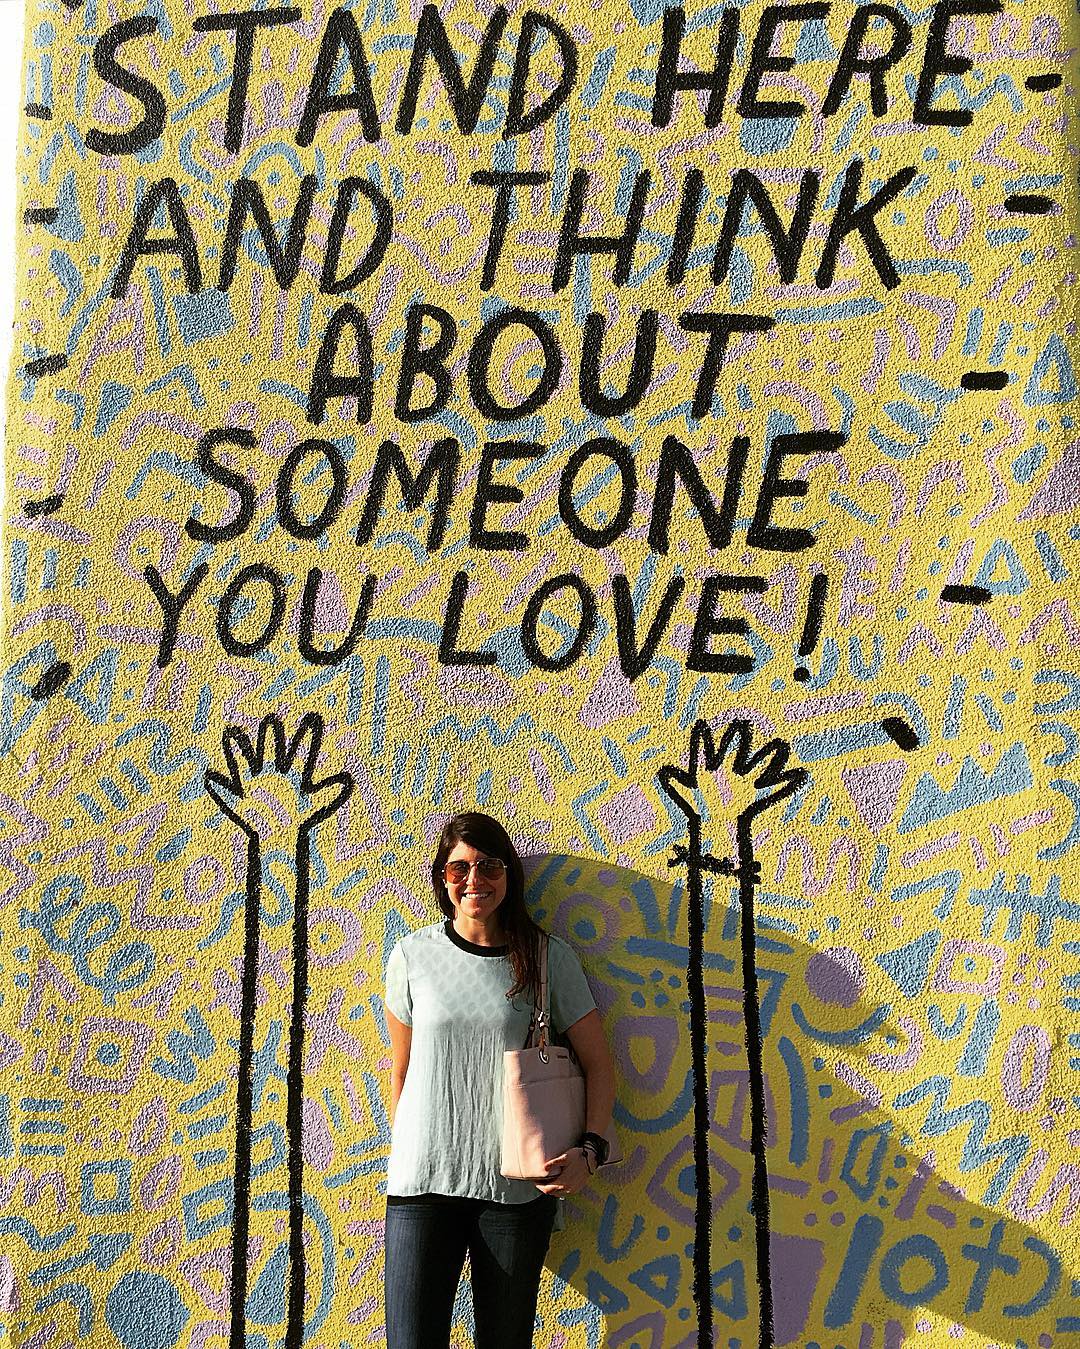 STAND HERE
AND THINK
ABOUT
SOMEONE
YOU LOVE!